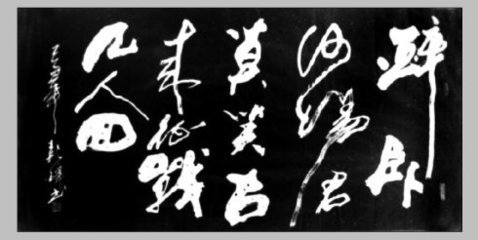 醉卧
沙场君
莫笑古
来征战
几人回